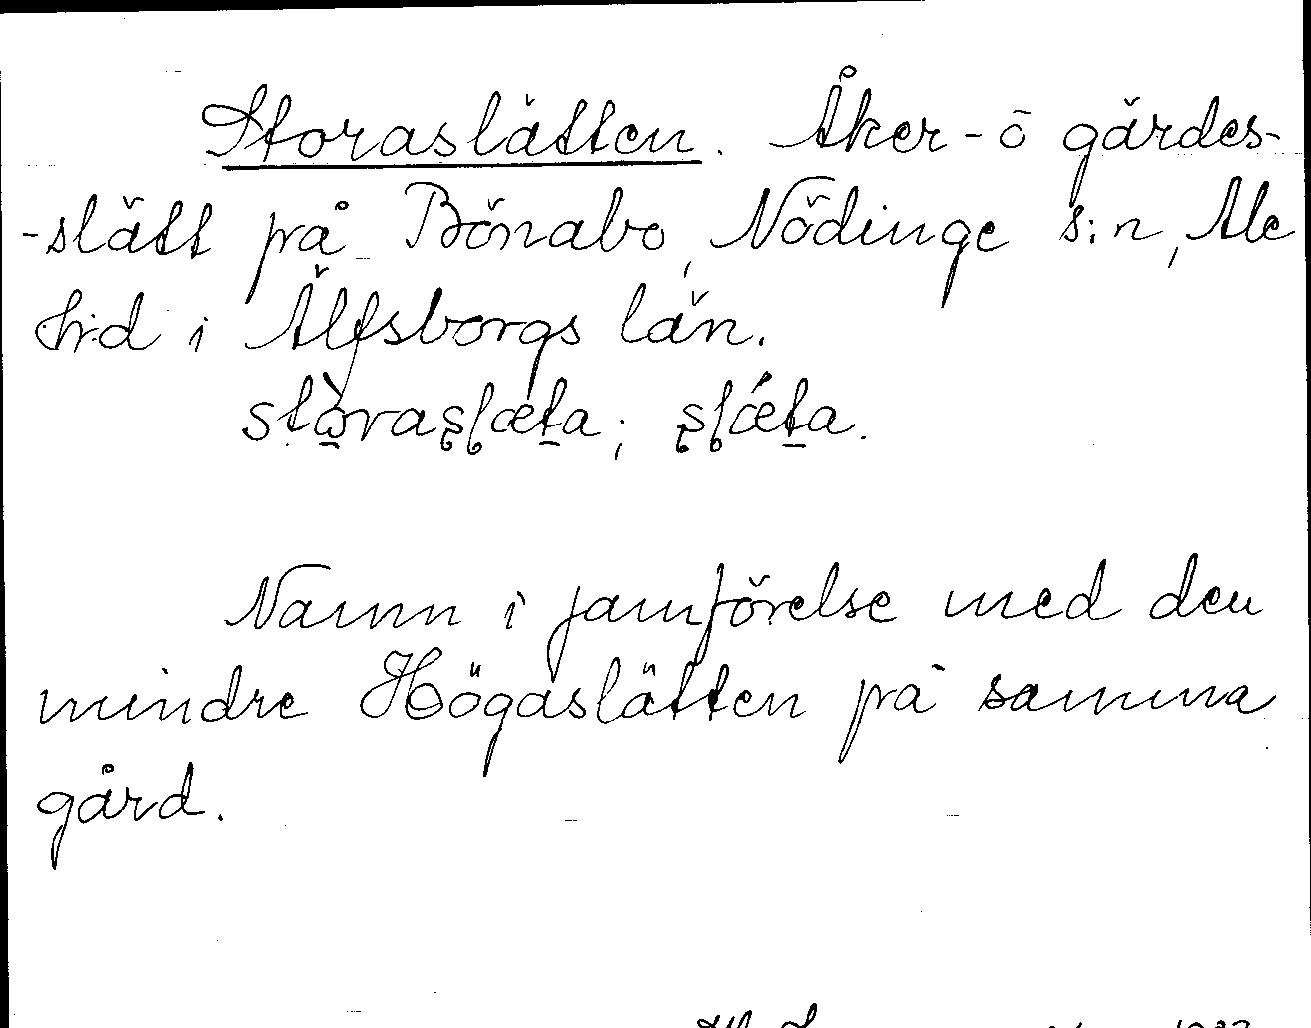 Storaslätten. Åker- ö gärdes-
-slätt på Bönabo, Nödinge s:n, Ale
h:d i Älfsborgs län.
stò̱raʂɭæt̠a; ʂɭǽt̠a.
Namn i jämförelse med den
mindre Högaslätten på samma
gård.